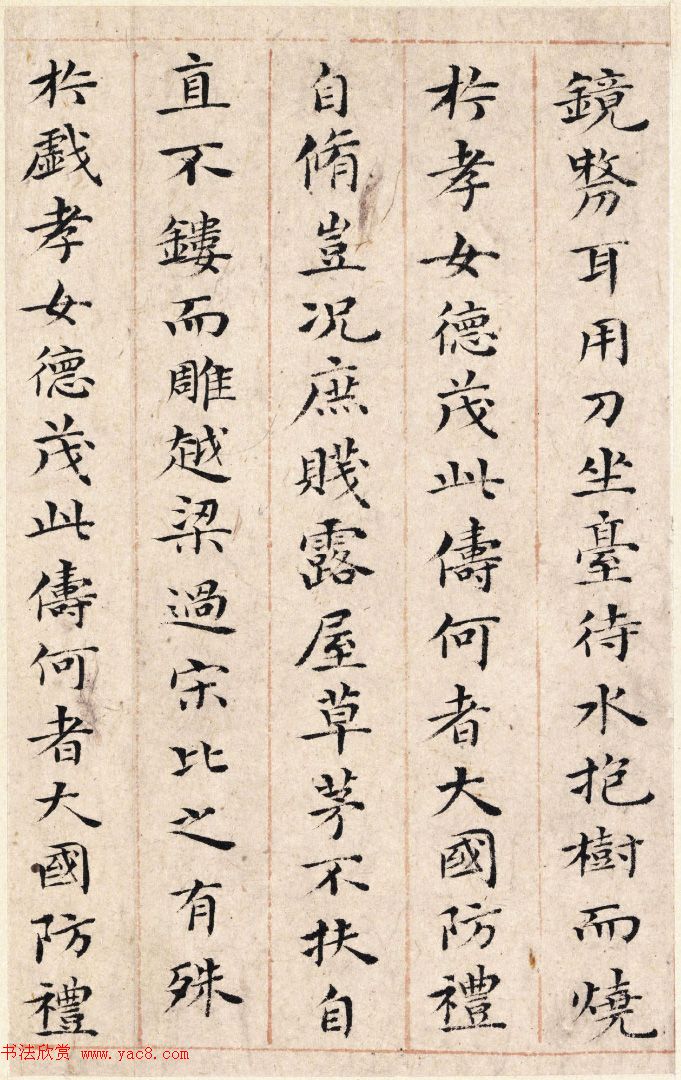 鏡剺耳用刀坐臺待水抱樹而燒
於孝女德茂此儔何者大國防禮
自脩豈況庶賤露屋草茅不扶自
直不鏤而雕越梁過宋比之有殊
於戲孝女德茂此儔何者大國防禮
书法欣赏 www.yac8.com